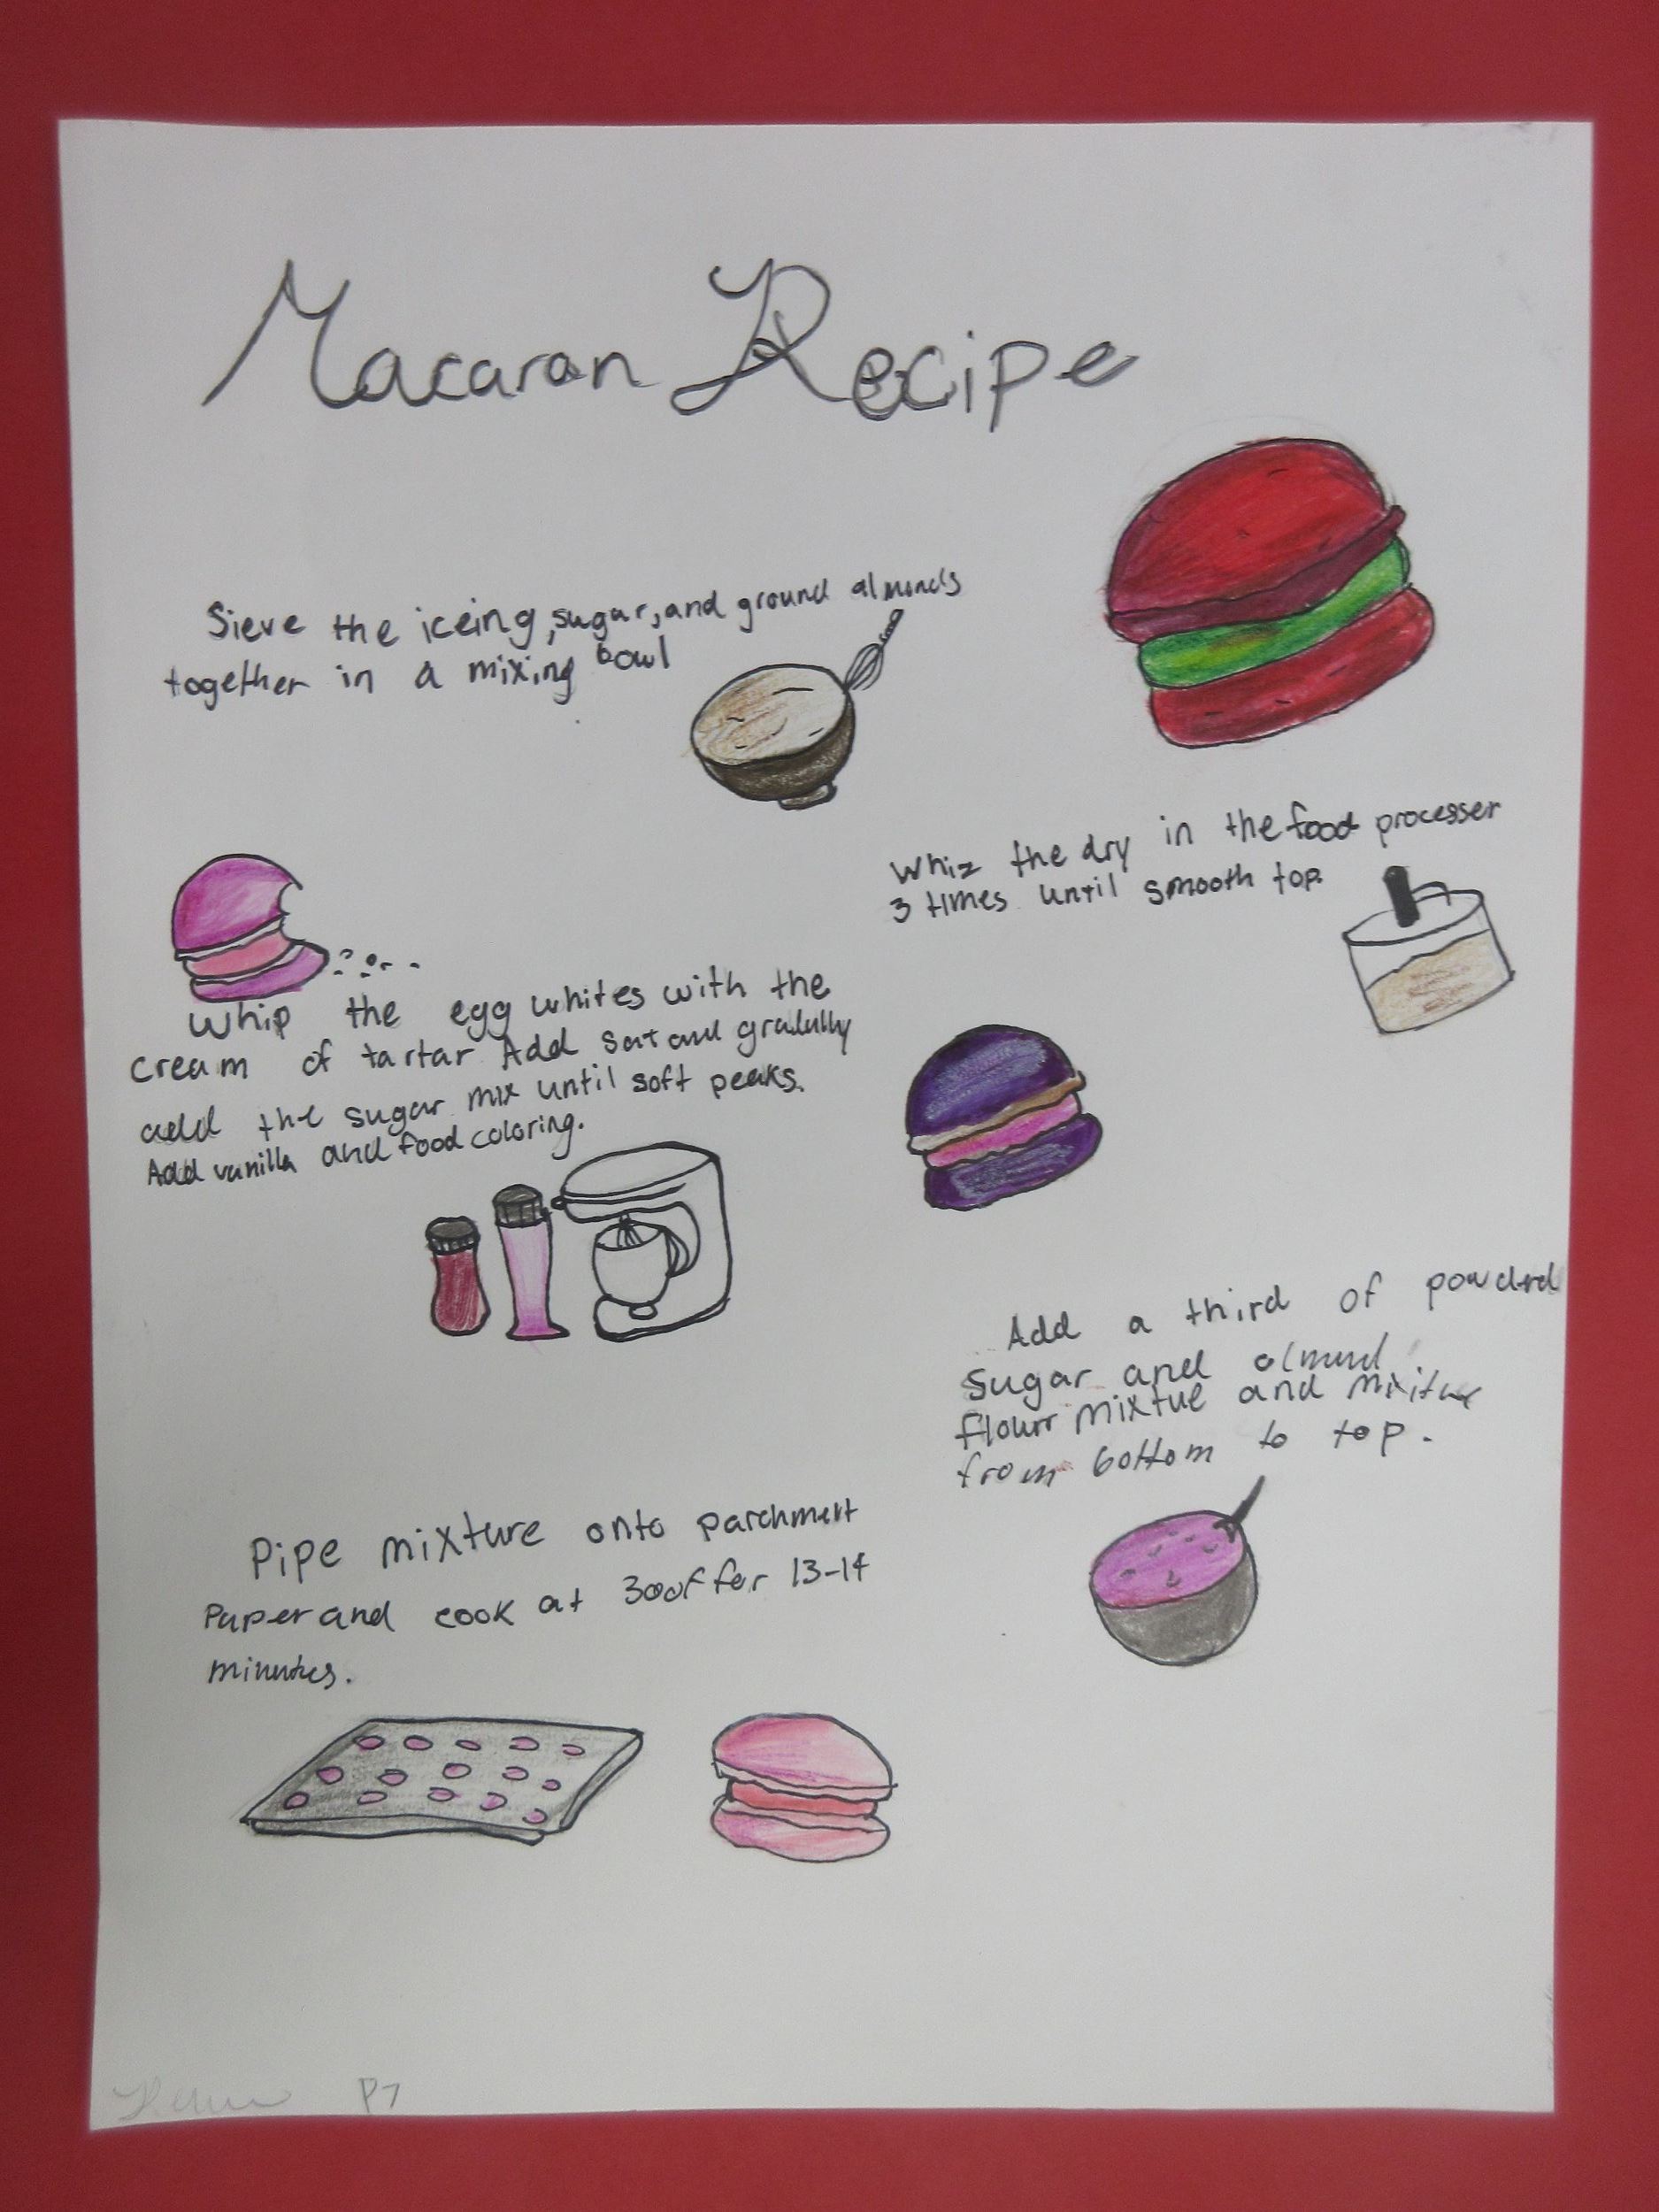 Macaron Recipe
Sieve the iceing, sugar, and ground almonds
together in a mixing bowl
Whiz the dry in the food processer
3 times until smooth top.
Whip the egg whites with the
cream of tartar Add and
add the sugar mix until soft peaks.
Add vanilla and food coloring.
Add a third of
sugar and
flour and
from bottom to top.
Pipe mixture onto parchment
Paper and cook at 300f for 13-14
minutes.
P7